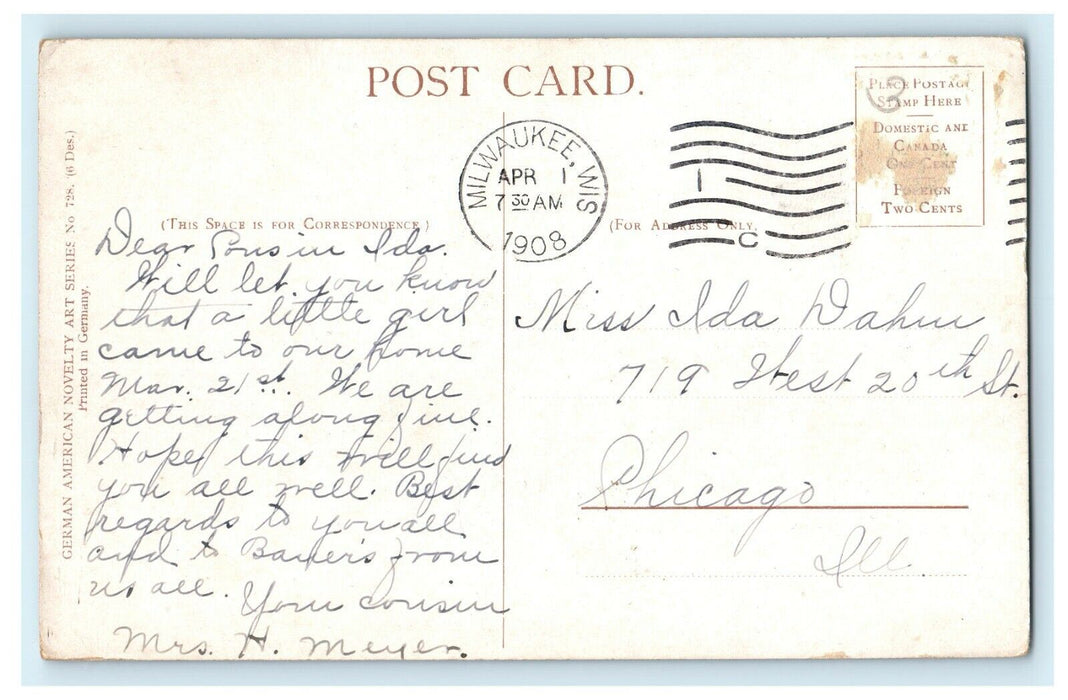 POST CARD.
PLACE POSTAGE
STAMP HERE
DOMESTIC AND
CANADA
ONE CENT
FOREIGN
TWO CENTS
MILWAUKEE, WIS
APR 1
7 30 AM
1908
1
C
(THIS SPACE IS FOR CORRESPONDENCE)
(FOR ADDRESS ONLY.
GERMAN AMERICAN NOVELTY ART SERIES No 728. (6 Des.)
Printed in Germany.
Dear Cousin Ida.
Will let you know
that a little girl
came to our home
Mar. 21st. We are
getting along fine.
Hope this will find
you all well. Best
regards to you all
and to Bauer's from
us all. Your cousin
Mrs. H. Meyer.
Miss Ida Dahm
719 West 20th St.
Chicago
Ill.